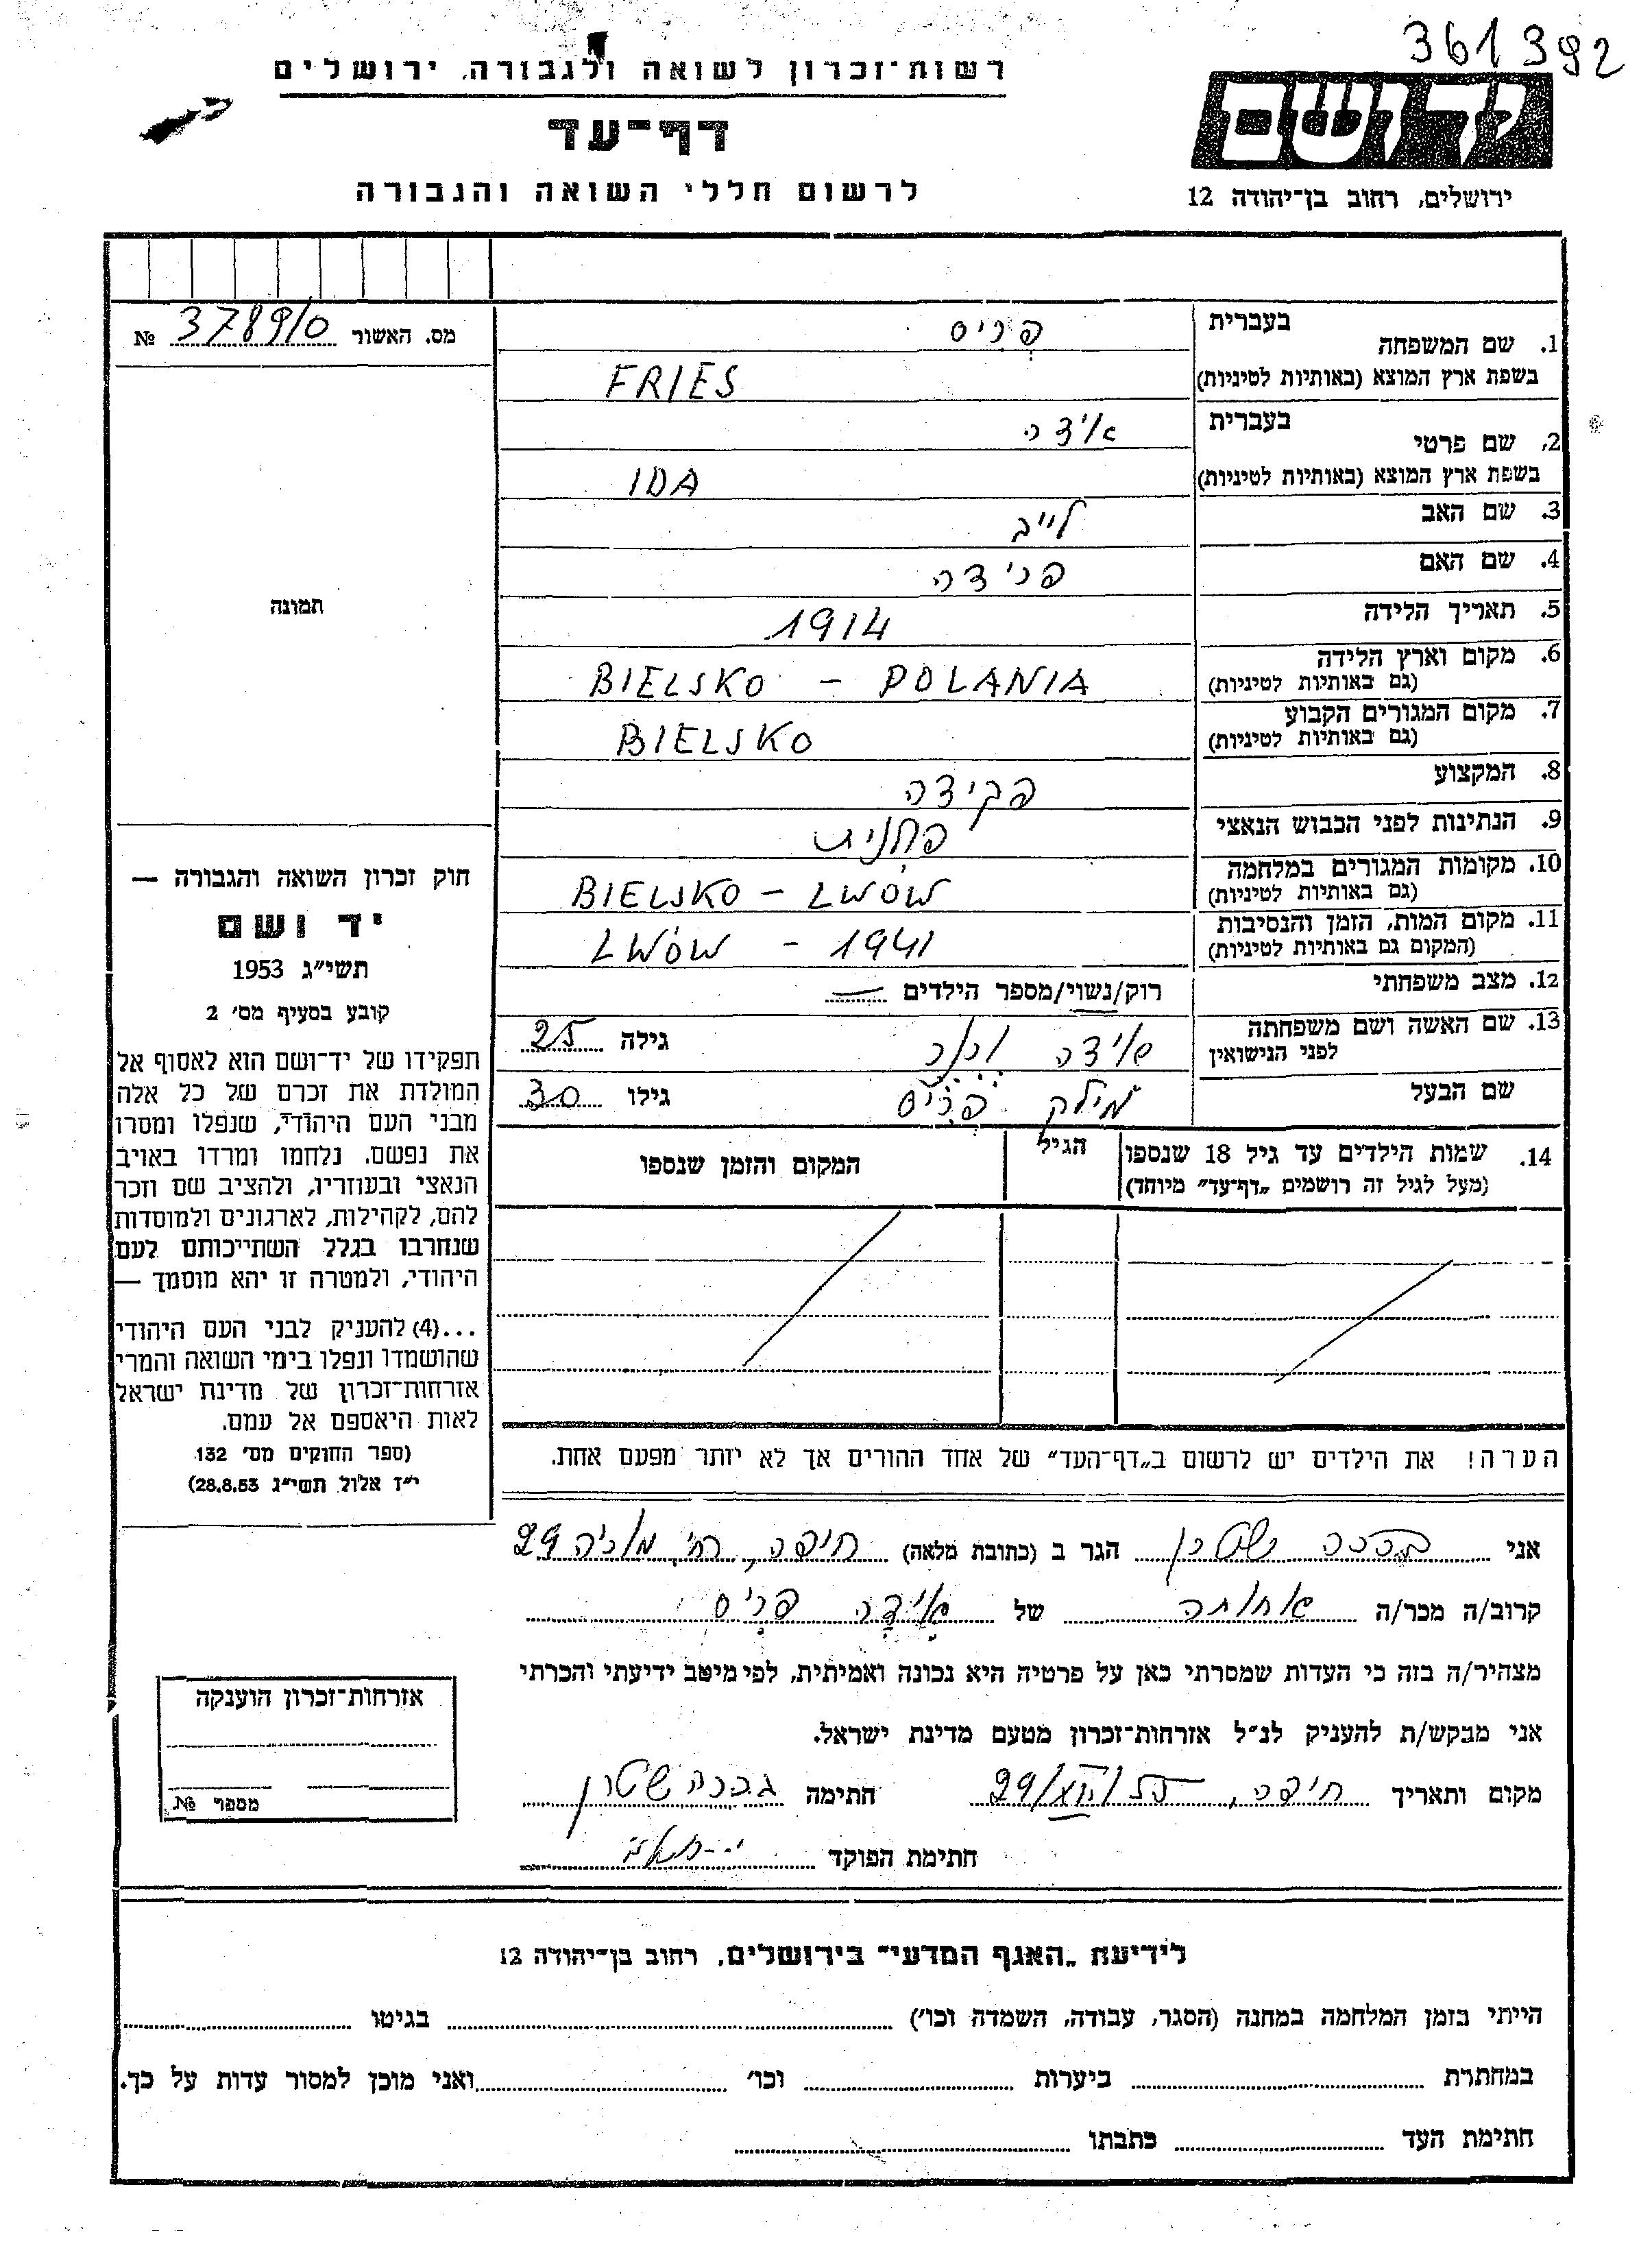 361392
רשות-זכרון לשואה ולגבורה, ירושלים
דף-עד
לרשום חללי השואה והגבורה
יד ושם
ירושלים, רחוב בן-יהודה 12
מס. האשור 378910 №
1. שם המשפחה
בעברית פריס
בשפת ארץ המוצא (באותיות לטיניות) FRIES
2. שם פרטי
בעברית אידה
בשפת ארץ המוצא (באותיות לטיניות) IDA
3. שם האב לייב
4. שם האם פרידה
5. תאריך הלידה 1914
6. מקום וארץ הלידה (גם באותיות לטיניות) BIELSKO – POLANIA
7. מקום המגורים הקבוע (גם באותיות לטיניות) BIELSKO
8. המקצוע פקידה
9. הנתינות לפני הכבוש הנאצי פולנית
10. מקומות המגורים במלחמה (גם באותיות לטיניות) BIELSKO – LWÓW
11. מקום המות, הזמן והנסיבות (המקום גם באותיות לטיניות) LWÓW – 1941
12. מצב משפחתי רוק/נשוי/מספר הילדים —
13. שם האשה ושם משפחתה לפני הנישואין אידה גילה 25
שם הבעל מילק פריס גילו 30
14. שמות הילדים עד גיל 18 שנספו
(מעל לגיל זה רושמים „דף-עד" מיוחד)
הגיל
המקום והזמן שנספו
תמונה
חוק זכרון השואה והגבורה —
יד ושם
תשי"ג 1953
קובע בסעיף מס' 2
תפקידו של יד-ושם הוא לאסוף אל
המולדת את זכרם של כל אלה
מבני העם היהודי, שנפלו ומסרו
את נפשם, נלחמו ומרדו באויב
הנאצי ובעוזריו, ולהציב שם וזכר
להם, לקהילות, לארגונים ולמוסדות
שנחרבו בגלל השתייכותם לעם
היהודי, ולמטרה זו יהא מוסמך —
...(4) להעניק לבני העם היהודי
שהושמדו ונפלו בימי השואה והמרי
אזרחות-זכרון של מדינת ישראל
לאות היאספם אל עמם.
(ספר החוקים מס' 132
י"ז אלול תשי"ג 28.8.53)
הערה! את הילדים יש לרשום ב„דף-העד" של אחד ההורים אך לא יותר מפעם אחת.
אני שטרן הגר ב (כתובת מלאה) חיפה, רח' 29
קרוב/ה מכר/ה אחותה של אידה פריס
מצהיר/ה בזה כי העדות שמסרתי כאן על פרטיה היא נכונה ואמיתית, לפי מיטב ידיעתי והכרתי
אני מבקש/ת להעניק לנ"ל אזרחות-זכרון מטעם מדינת ישראל.
מקום ותאריך חיפה, 29/XII/55 חתימה שטרן
חתימת הפוקד
אזרחות-זכרון הוענקה
מספר №
לידיעת „האגף המדעי" בירושלים, רחוב בן-יהודה 12
הייתי בזמן המלחמה במחנה (הסגר, עבודה, השמדה וכו') בגיטו
במחתרת ביערות וכו' ואני מוכן למסור עדות על כך.
חתימת העד כתבתו